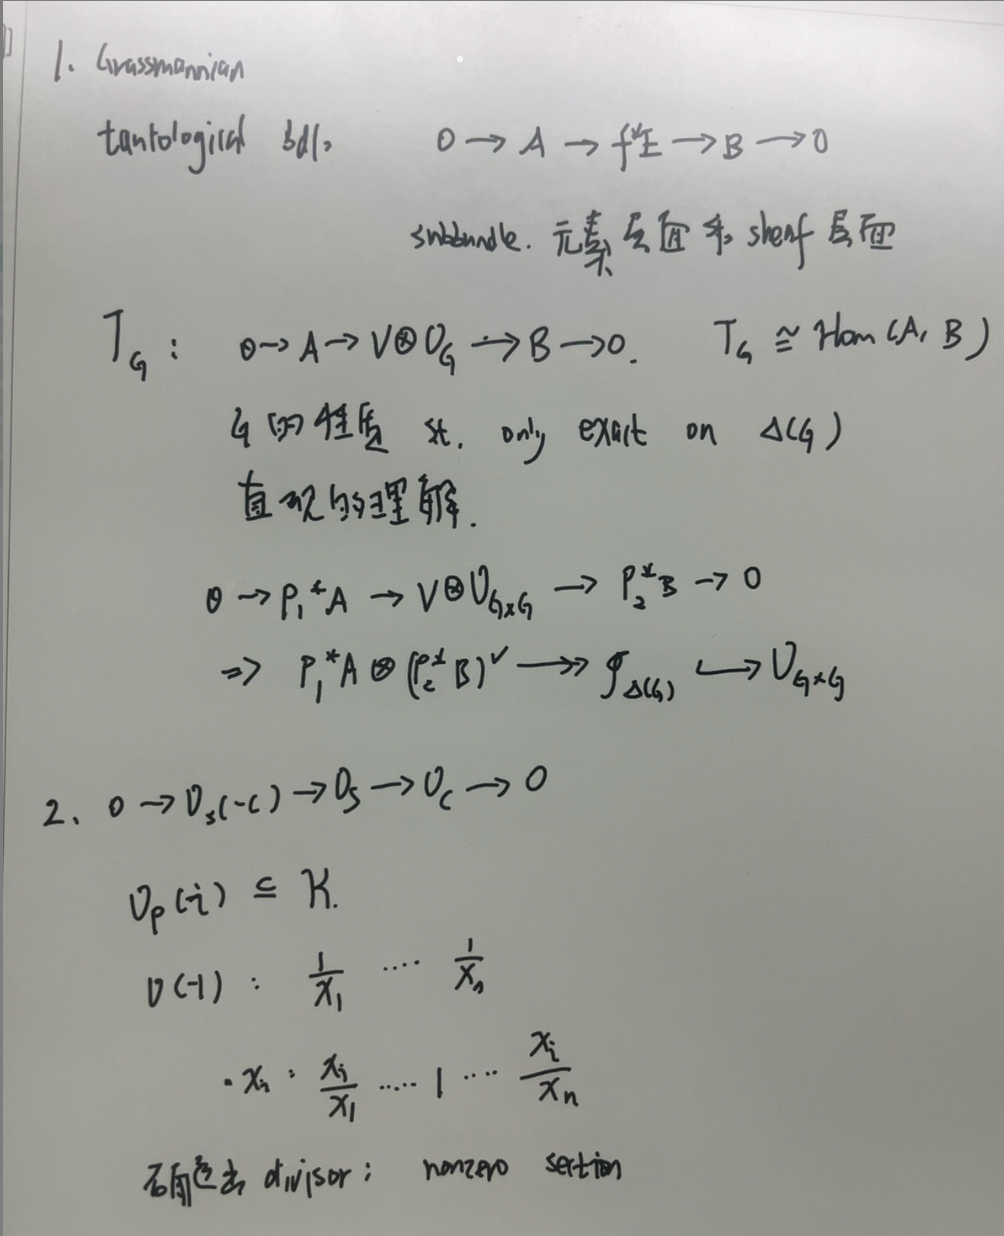 1. Grassmannian
tautological bdl. 0 → A → f*E → B → 0
subbundle. 元素层面和 sheaf 层面
T_G : 0 → A → V⊗O_G → B → 0. T_G ≅ Hom(A, B)
G的性质 st. only exact on Δ(G)
直观的理解.
0 → P_1^*A → V⊗O_{G×G} → P_2^*B → 0
⇒ P_1^*A ⊗ (P_2^*B)^∨ ↠ 𝓘_{Δ(G)} ↪ O_{G×G}
2. 0 → O_S(-C) → O_S → O_C → 0
O_P(i) ⊆ K.
O(-1) : 1/x_1 ···· 1/x_n
·x_i : x_i/x_1 ····· 1 ···· x_i/x_n
divisor : nonzero section